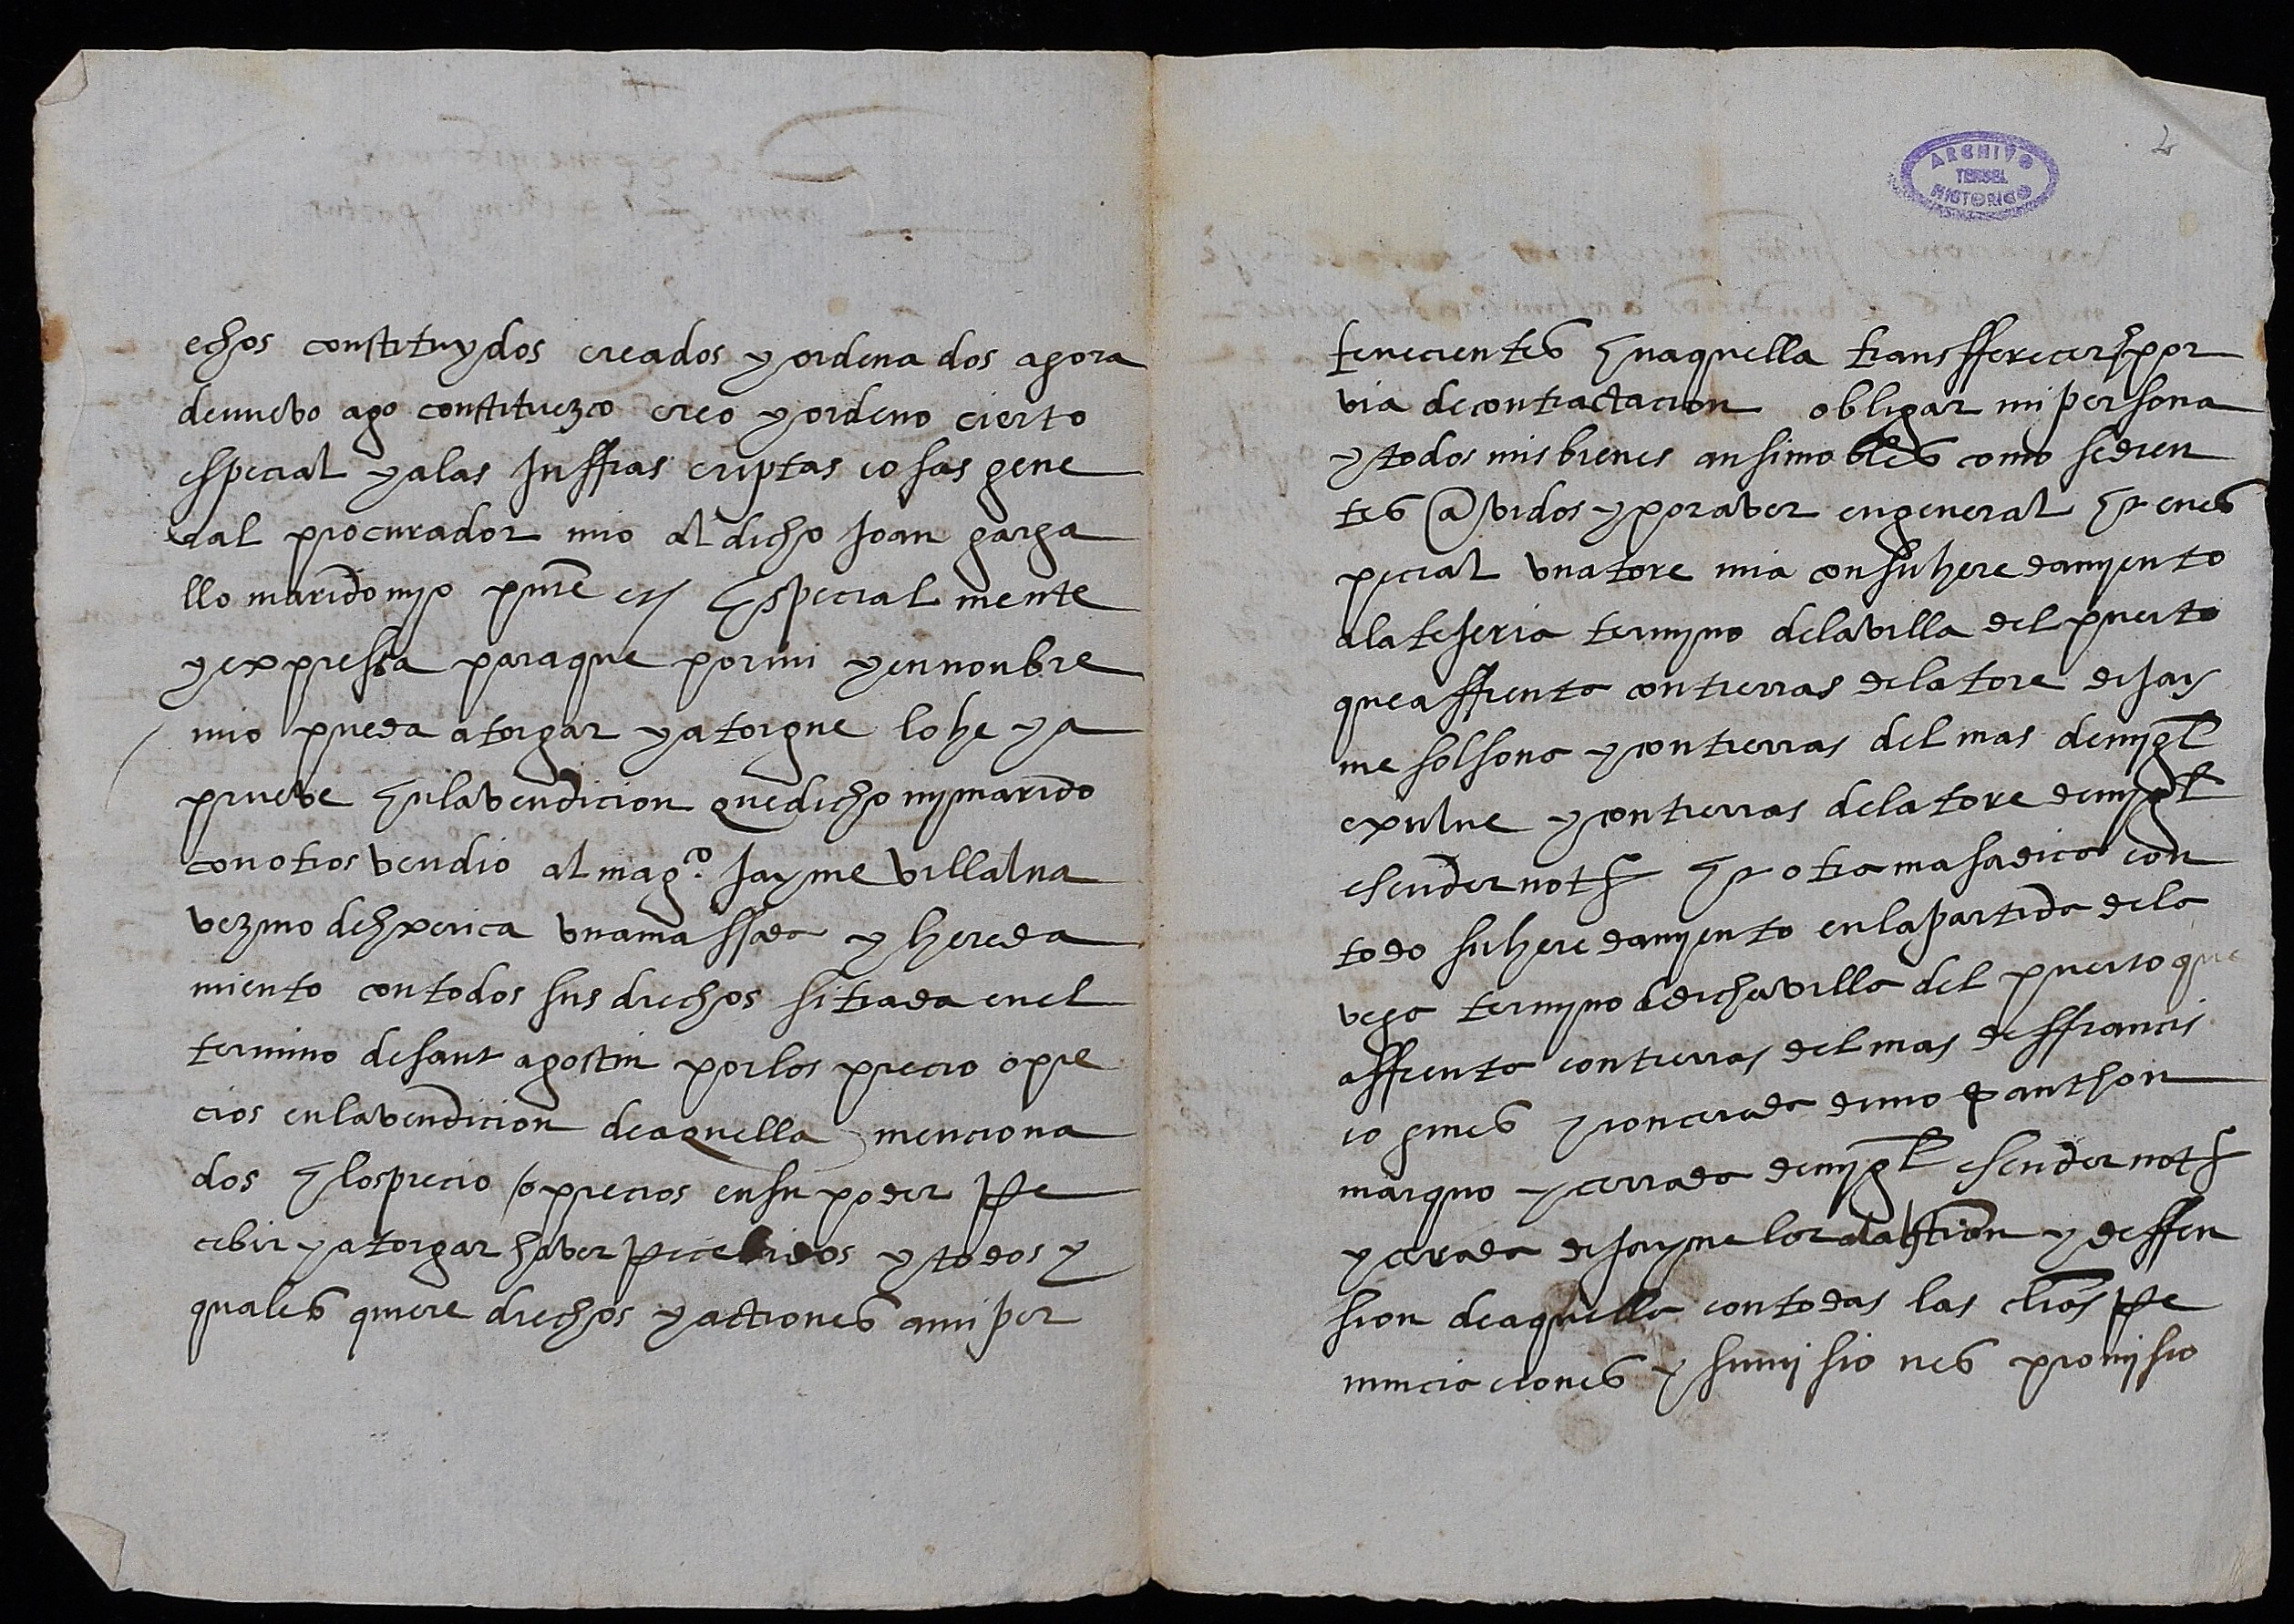 echos constituydos creados y ordena dos agora
denuevo ago constituezco creo y ordeno cierto
especial y alas Inffras criptas cosas gene
ral procurador mio al dicho Joan garga
llo marido myo pnte etz Especial mente
y expressa paraque pormi y en nonbre
mio pueda atorgar y atorgue lohe y a
prueve En la vendicion quedicho mymarido
con otros vendio al magco. Jayme villalua
vezino de Exerica una massada y hereda
miento con todos sus drechos sitiada en el
termino de sant agostin por los precio o pre
cios en la vendicion de aquella menciona
dos E los precio /o precios en su poder Pe
cebir y atorgar haver Pecebidos y todos y
quales quiere drechos y actiones ami per
ARCHIVO
TERUEL
HISTORICO
2
tenecientes En aquella transfferecer Et por
via de contractacion obligar mi persona
y todos mis bienes ansi mobles como sedien
tes avidos y por aver en general Et en es
pecial una tore mia con su heredamyento
a la tejeria termyno de la villa del puerto
que affrenta con tierras de la tore de Jay
me solsona y con tierras del mas de mygl
exulue y con tierras de la tore de mygl
esender noth Et otra masadica con
todo su heredamyento en la partida de la
vega termyno de dicha villa del puerto que
affrenta con tierras del mas de ffrancis
co gines y con cerada de mo anthon
marquo y cerrada de mygl esender noth
y cerada de Jayme lor a la Etion y deffen
sion de aquella con todas las clias Re
nunciaciones y sumisio nes promisio